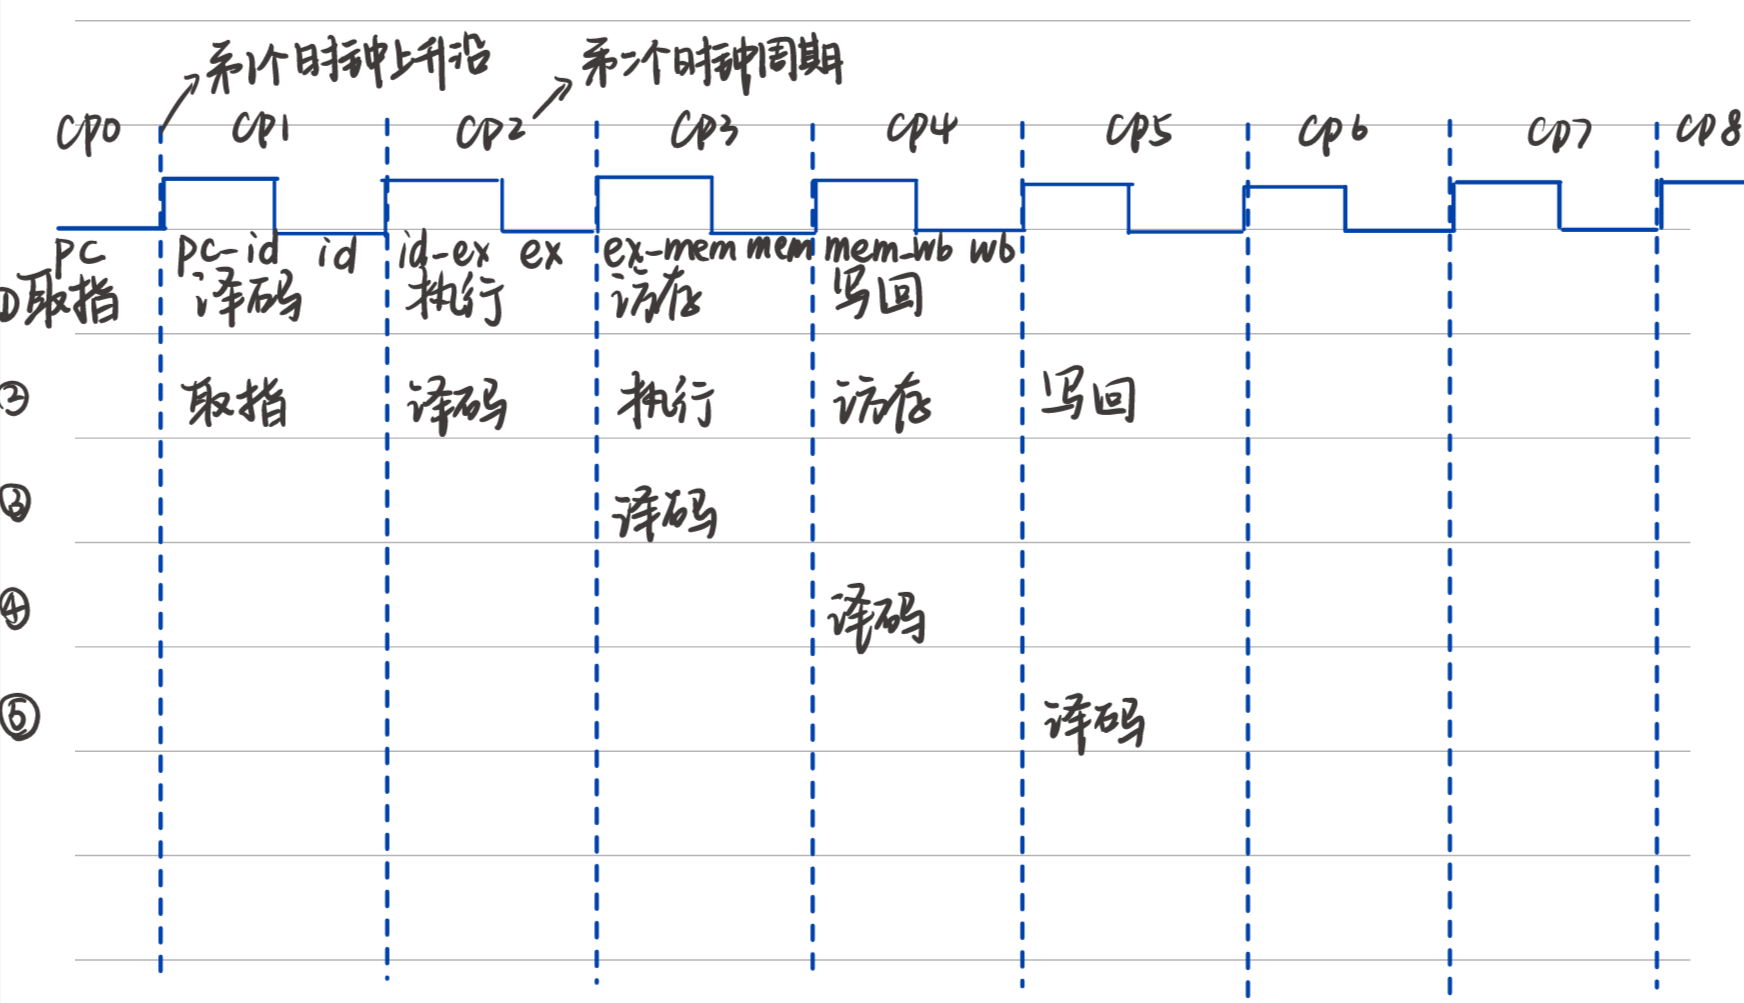 第1个时钟上升沿 第二个时钟周期
cp0 cp1 cp2 cp3 cp4 cp5 cp6 cp7 cp8
pc pc-id id id-ex ex ex-mem mem mem-wb wb
①取指 译码 执行 访存 写回
② 取指 译码 执行 访存 写回
③ 译码
④ 译码
⑤ 译码